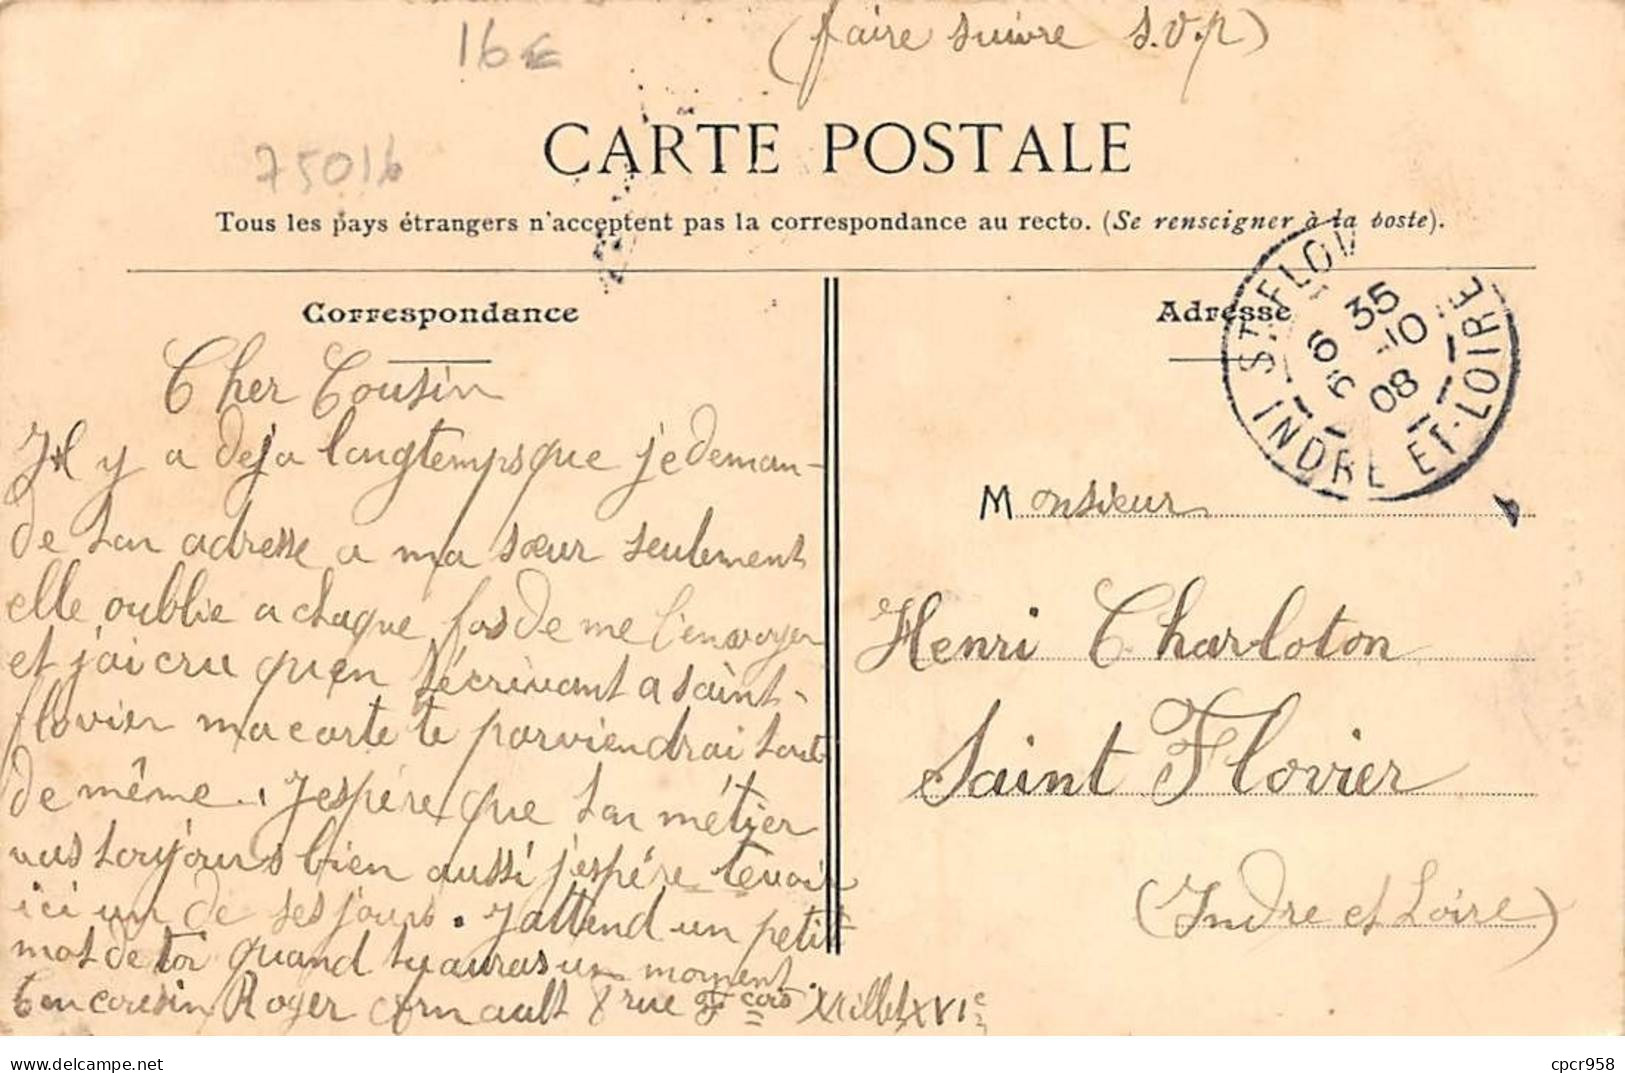 (faire suivre s.v.p)
16€
75016
CARTE POSTALE
Tous les pays étrangers n'acceptent pas la correspondance au recto. (Se renseigner à la poste).
Correspondance
Cher Cousin
Il y a deja longtemps que je deman-
de ton adresse a ma sœur seulement
elle oublie a chaque fois de me l'envoyer
et j'ai cru qu'en t'écrivant a saint-
flovier ma carte te parviendrai tout
de même. J'espère que ton métier
vas toujours bien aussi j'espére te voir
ici un de ses jours. J'attend un petit
mot de toi quand tu auras un moment.
ton cousin Roger Arnault 8 rue
XVIe
Adresse
ST-FLOVI
INDRE ET-LOIRE
35
5-10
08
Monsieur
Henri Charloton
Saint Flovier
(Indre et Loire)
delcampe.net
cpcr958